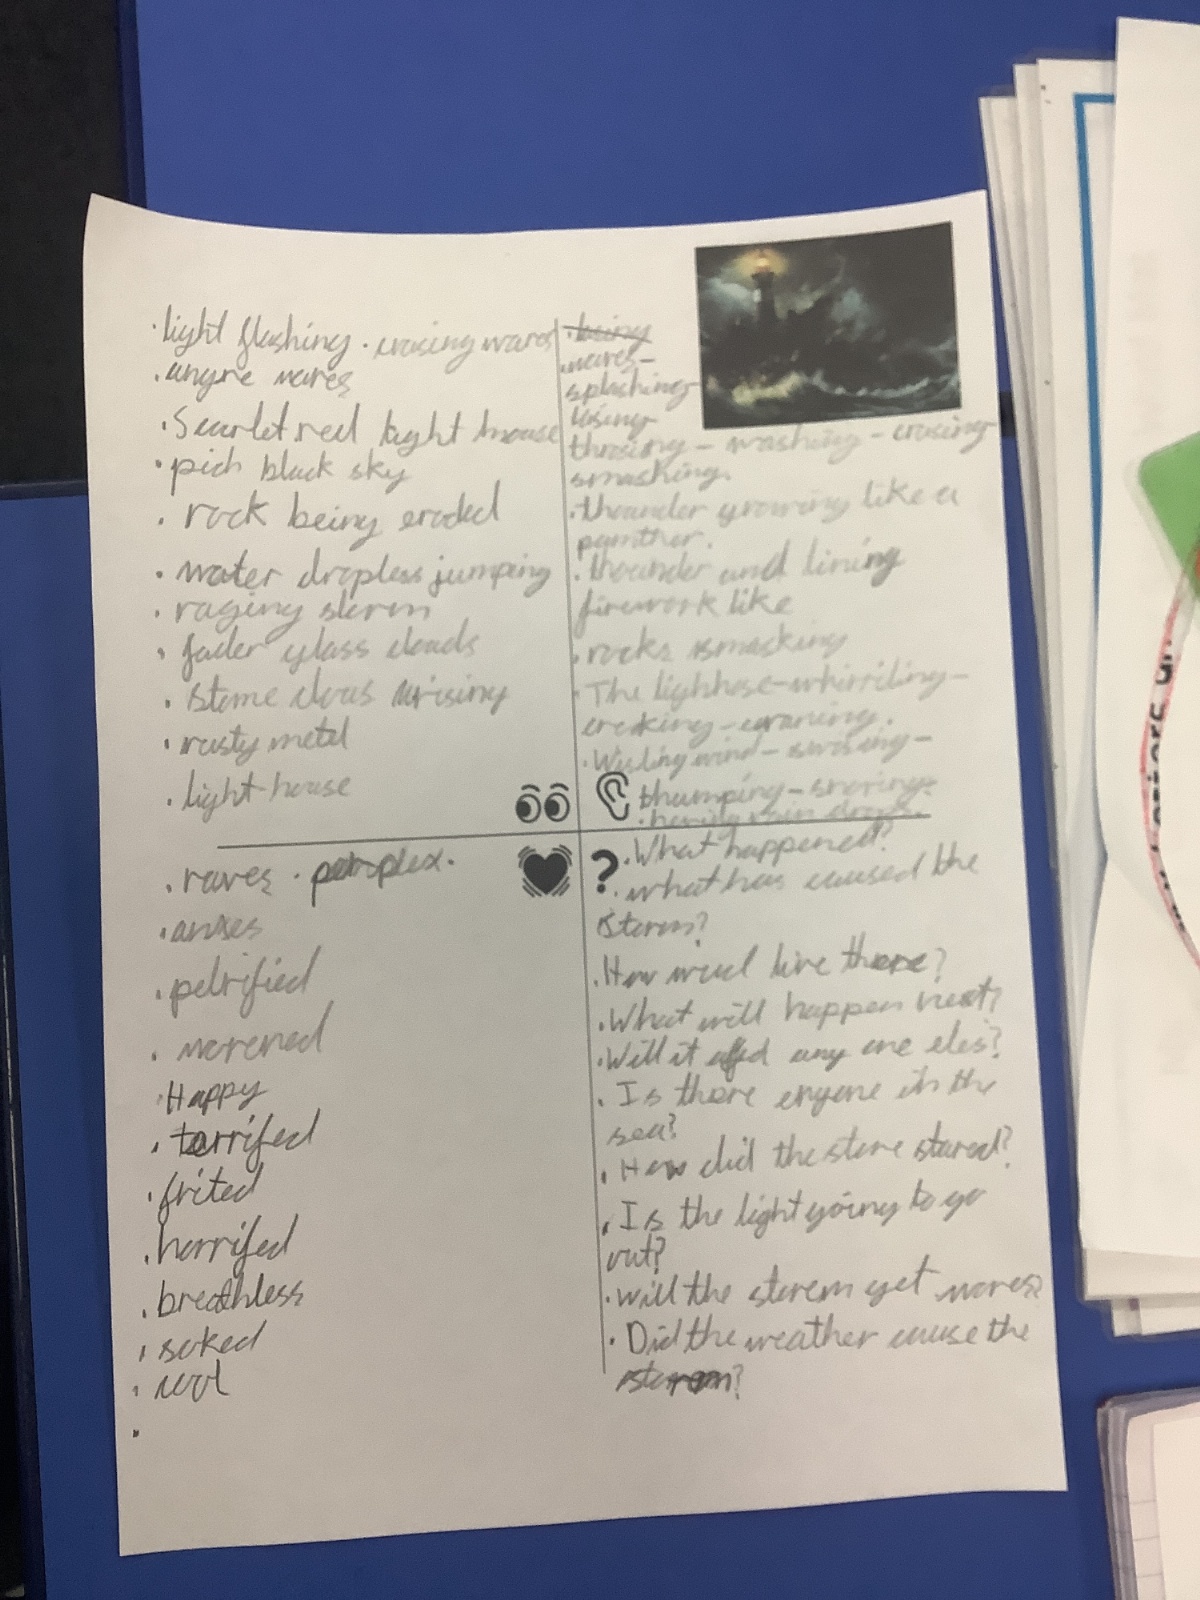 · light flashing · crasing waves
· angre waves
· Scarlet red light house
· pich black sky
· rock being eroded
· water dropless jumping
· raging storm
· fader glass clouds
· stome clous
· rusty metal
· light house
waves -
splashing -
thrasing - washing - crasing -
smashing.
· thounder growing like a
panther.
· thounder and lining
firework like
· rocks smasking
· The lighhose - whirriling -
creaking -
wind -
thumping - snoring.
rain drops.
· raves · perplex.
· anxes
· petrified
Happy
· terrifed
· frited
· horrifed
· breathless
· soked
· cool
?
· What happened?
· what has caused the
storm?
· How woud live there?
· What will happen next?
· Will it affed any one eles?
· Is there enyone in the
sea?
· How did the store stared?
· Is the light going to go
out?
· will the storem get
· Did the weather cause the
storom?